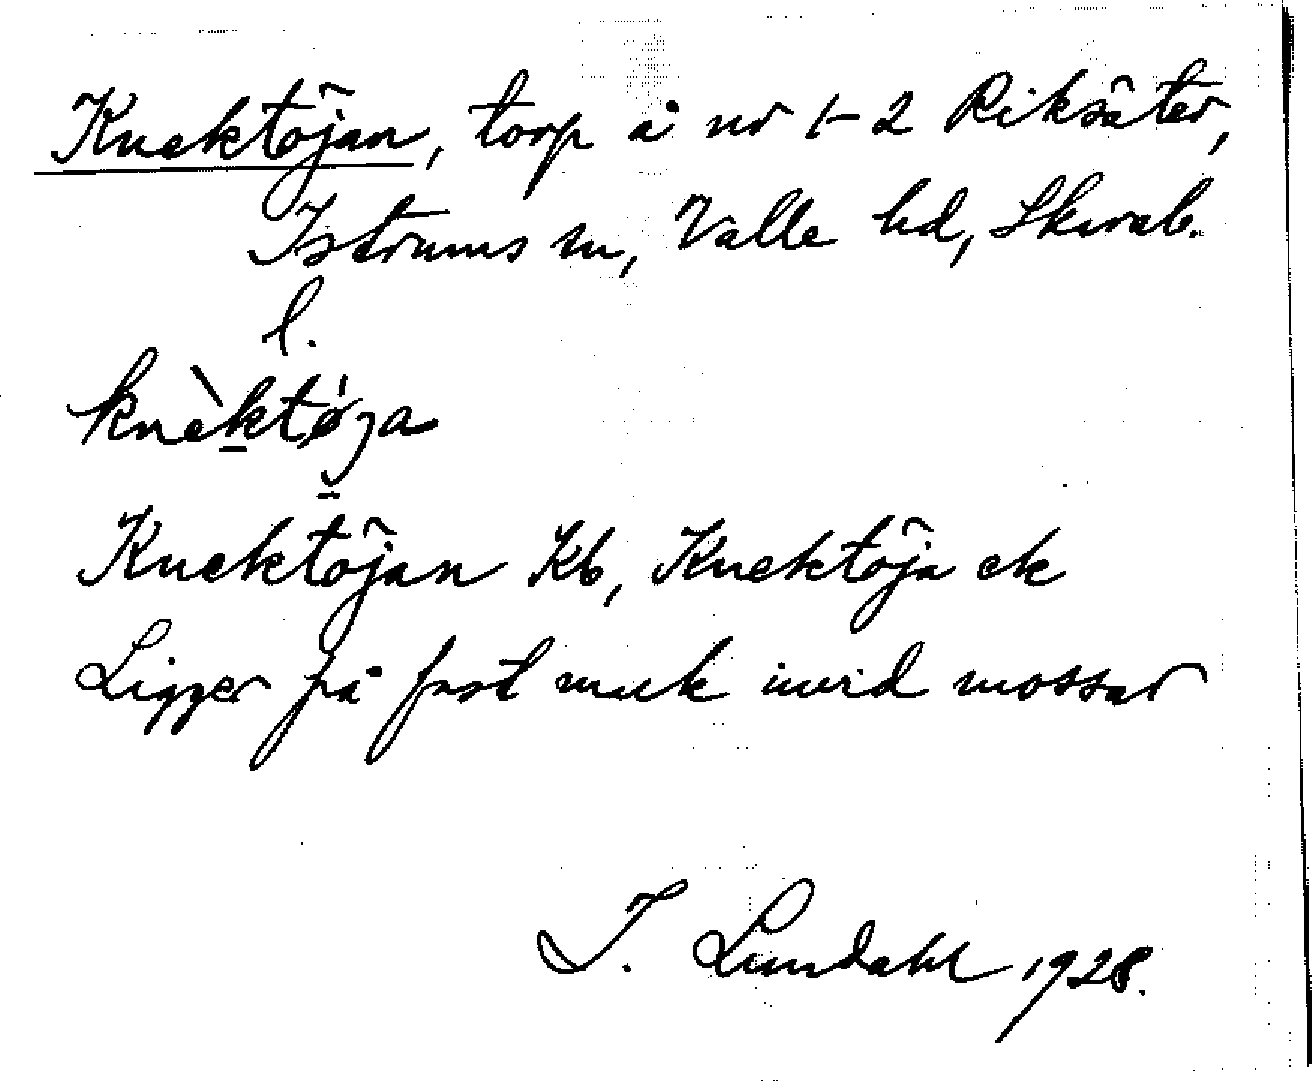 Knektöjan, torp å nr 1-2 Riksäter,
Istrums sn, Valle hd, Skarab.
l.
knèktø̀ja
Knektöjan Kb, Knektöja ek
Ligger på fast mark invid mossar
I. Lundahl 1928.